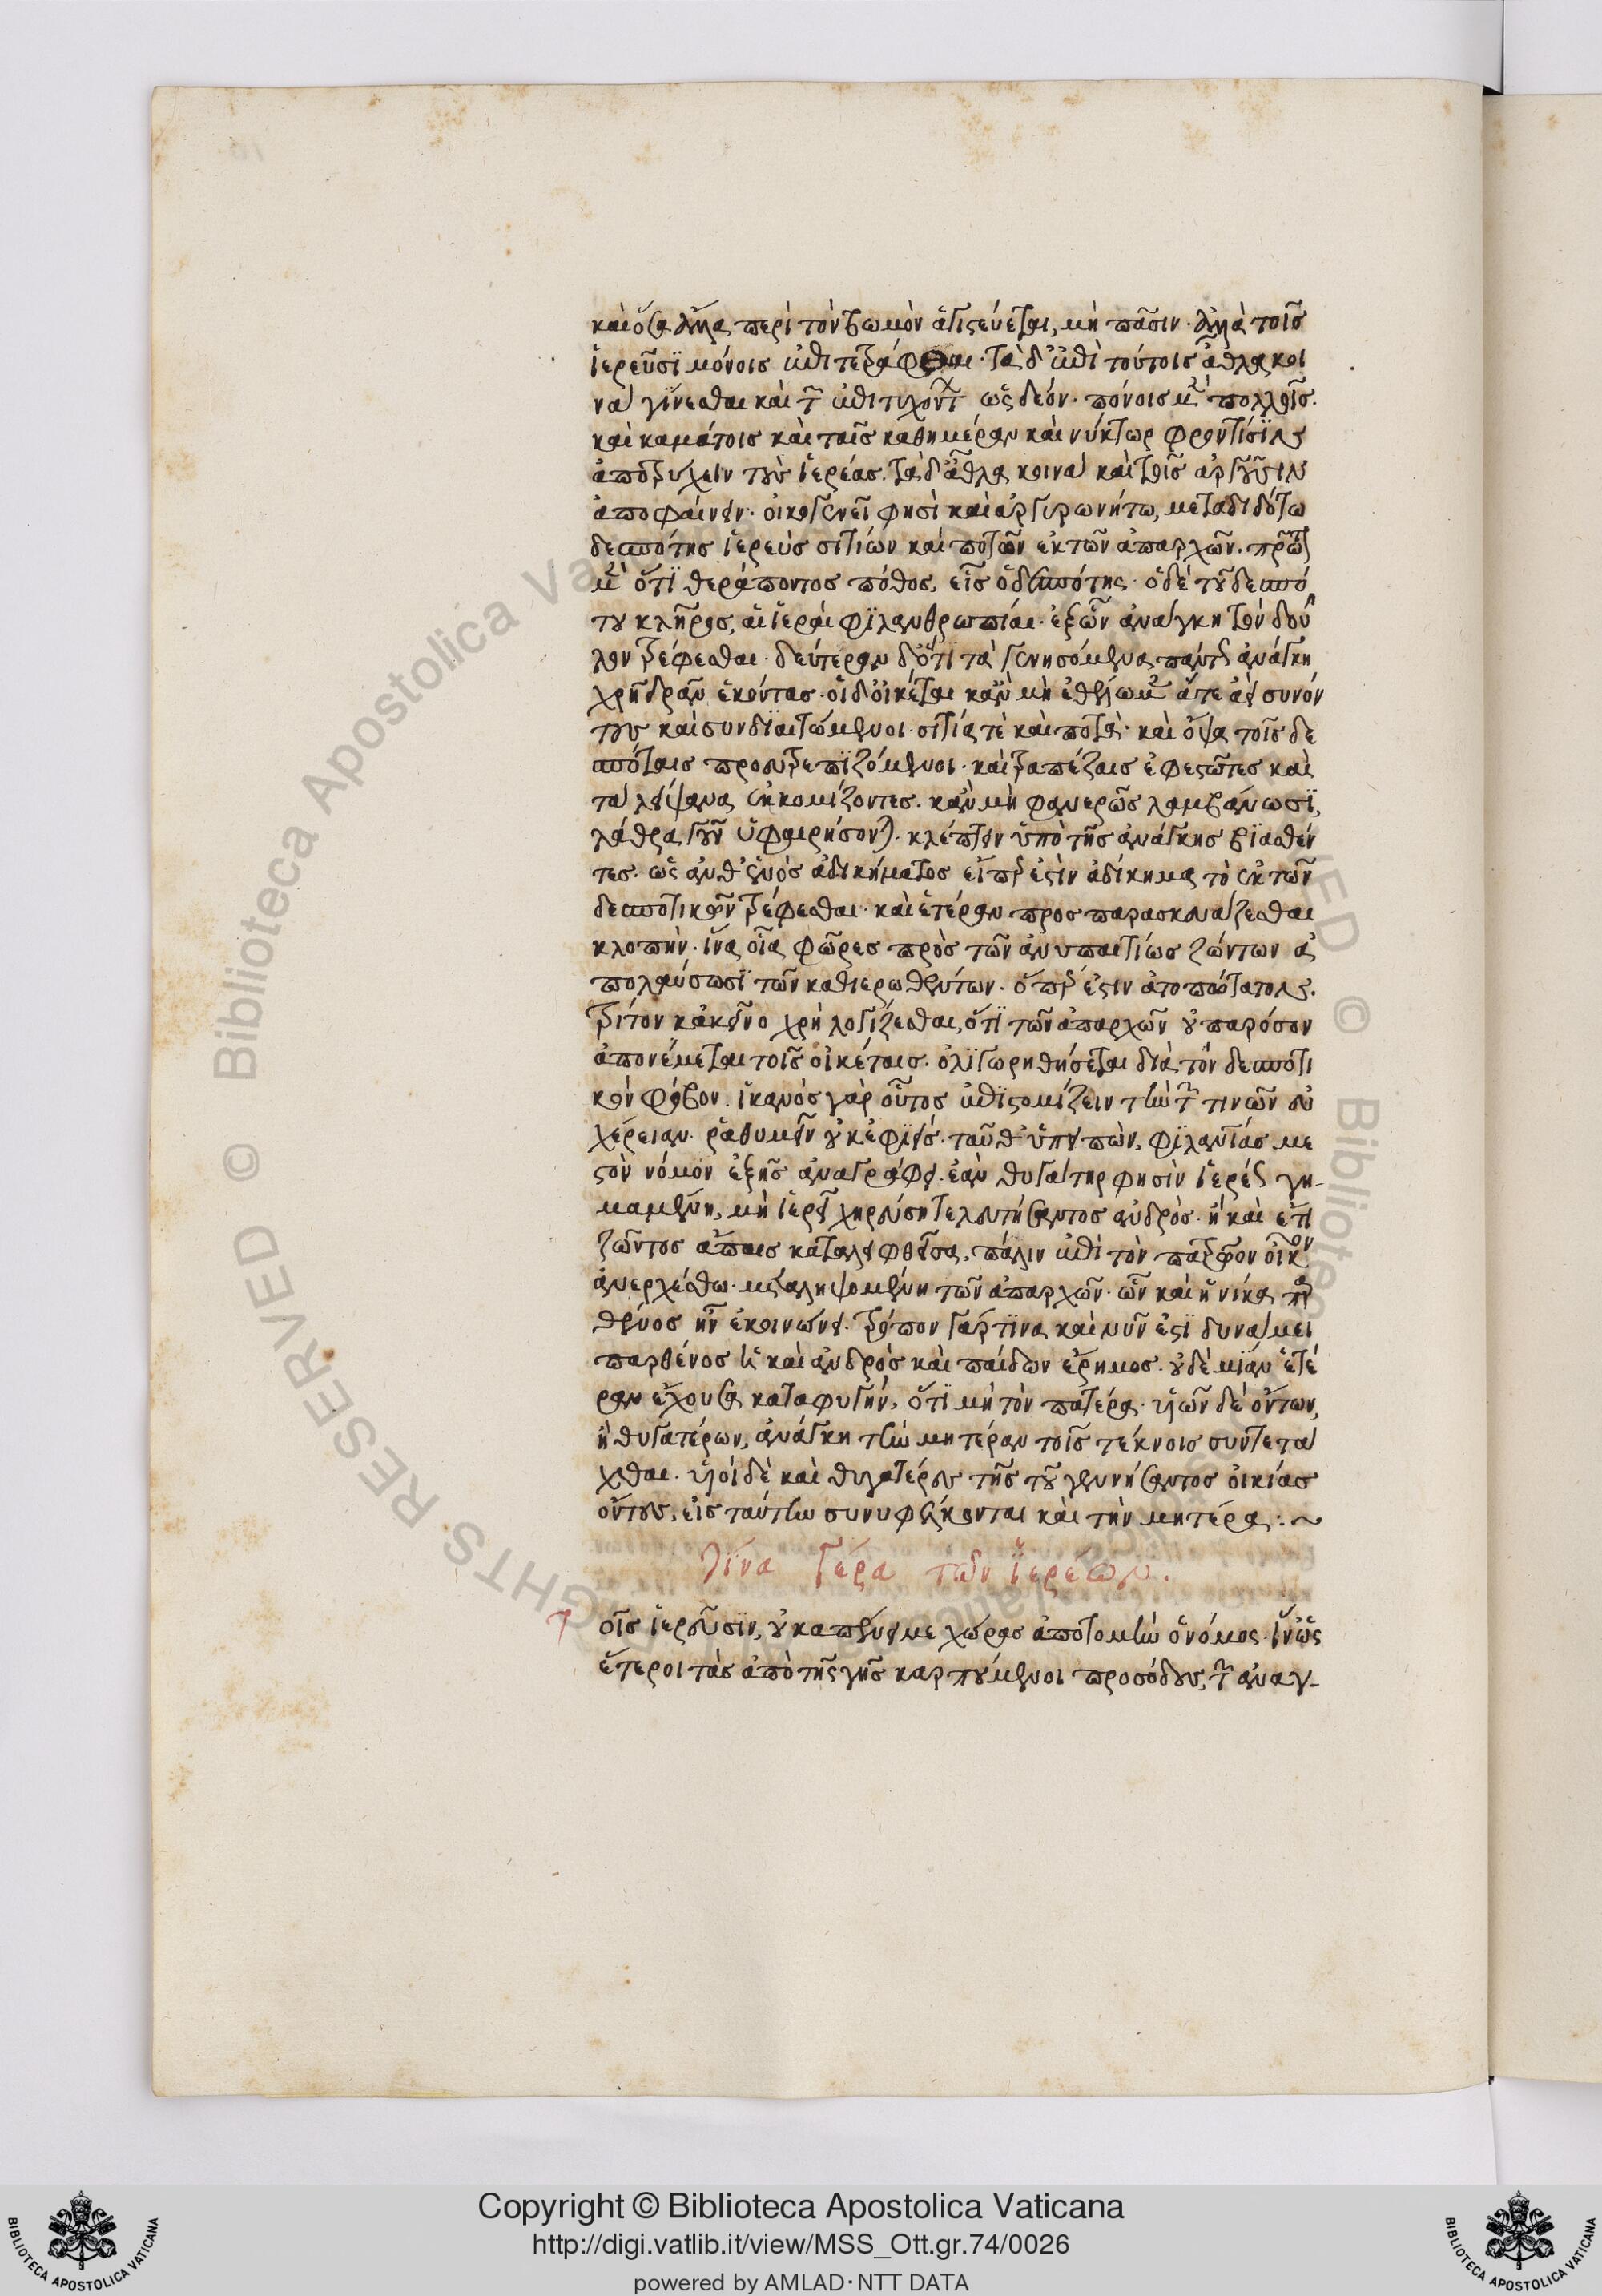 καὶ ὅσα ἄλλα περὶ τὸν βωμὸν ἁγιστεύεται, μὴ πᾶσιν· ἀλλὰ τοῖς
ἱερεῦσϊ μόνοις ἐπιτετράφθαι· τὰ δ' ἐπὶ τούτοις ἆθλα κοι
νὰ γίνεσθαι καὶ τῶν ἐπιτυχόντων ὡς δέον· πόνοις μὲν πολλοῖς.
καὶ καμάτοις καὶ ταῖς καθημέραν καὶ νύκτωρ φροντίσϊν
ἀποτρύχειν τοὺς ἱερέας. τὰ δ' ἆθλα κοινὰ καὶ τοῖς ἀργοῦσιν
ἀποφαίνειν· οἰκογενεῖ φησὶ καὶ ἀργυρωνήτω, μεταδιδότω
δεσπότης ἱερεὺς σιτίων καὶ ποτῶν ἐκ τῶν ἀπαρχῶν. πρῶτον
μὲν ὅτϊ θεράποντος πόθος, εἷς ὁ δεσπότης· ὁ δὲ τοῦ δεσπό
του κλῆρος, αἱ ἱεραὶ φϊλανθρωπίαι· ἐξ ὧν ἀνάγκη τὸν δοῦ
λον τρέφεσθαι· δεύτερον δ' ὅτι τὰ γενησόμενα πάντως ἀνάγκη
χρὴ δρᾶν ἑκόντας· οἱ δ' οἰκέται κἂν μὴ ἐθέλωμεν ἅτε ἀεὶ συνόν
τες καὶ συνδϊαιτώμενοι· σιτία τὲ καὶ ποτὰ· καὶ ὄψα τοῖς δε
σπόταις προευτρεπϊζόμενοι· καὶ τραπέζαις ἐφεστῶτες καὶ
τὰ λείψανα ἐκκομίζοντες. κἂν μὴ φανερῶς λαμβάνωσϊ,
λάθρα γοῦν ὑφαιρήσονται· κλέπτειν ὑπὸ τῆς ἀνάγκης βϊασθέν
τες· ὡς ἀνθ' ἑνὸς ἀδικήματος εἴπερ ἐστὶν ἀδίκημα τὸ ἐκ τῶν
δεσποτικῶν τρέφεσθαι· καὶ ἕτερον προσπαρασκευάζεσθαι
κλοπὴν· ἵνα οἷα φῶρες πρὸς τῶν ἀνυπαιτίως ζώντων ἀ
πολαύσωσϊ τῶν καθιερωθέντων. ὅπερ ἐστιν ἀτοπώτατον.
τρίτον κἀκεῖνο χρὴ λογίζεσθαι, ὅτϊ τῶν ἀπαρχῶν οὐ παρόσον
ἀπονέμεται τοῖς οἰκέταις· ὀλϊγωρηθήσεται διὰ τὸν δεσποτι
κὸν φόβον. ἱκανὸς γὰρ οὗτος ἐπϊστομίζειν τὴν τῶν τινῶν εὐ
χέρειαν· ῥαθυμεῖν οὐκ ἐφϊείς· ταῦθ' ὑπειπὼν, φϊλαντίας με
στὸν νόμον ἑξῆς ἀναγράφει· ἐὰν θυγάτηρ φησὶν ἱερέως γη-
μαμένη, μὴ ἱερεῖ χηρεύση τελευτήσαντος ἀνδρὸς· ἢ καὶ ἔτι
ζῶντος ἄπαις καταλειφθεῖσα, πάλιν ἐπὶ τὸν πατρῷον οἶκον
ἀνερχέσθω· μεταληψομένη τῶν ἀπαρχῶν· ὧν καὶ ἡνίκα παρ
θένος ἦν ἐκοινώνει· τρόπον γάρ τϊνα καὶ νῦν ἐστϊ δυνάμει
παρθένος ἡ καὶ ἀνδρὸς καὶ παίδων ἔρημος· οὐδὲ μϊαν ἑτέ
ραν ἔχουσα καταφυγὴν, ὅτϊ μὴ τὸν πατέρα· υἱῶν δὲ ὄντων,
ἢ θυγατέρων, ἀνάγκη τὴν μητέραν τοῖς τέκνοις συντετά
χθαι· υἱοὶ δὲ καὶ θυγατέρες τῆς τοῦ γεννήσαντος οἰκίας
ὄντες, εἰς ταύτην συνυφέλκονται καὶ τὴν μητέρα :~
Τίνα γέρα τῶν ἱερέων.
Τοῖς ἱερεῦσϊν, οὐκ ἀπένειμε χώρας ἀποτομὴν ὁ νόμος· ἵν' ὡς
ἕτεροι τὰς ἀπὸ τῆς γῆς καρπούμενοι προσόδους, τῶν ἀναγ-